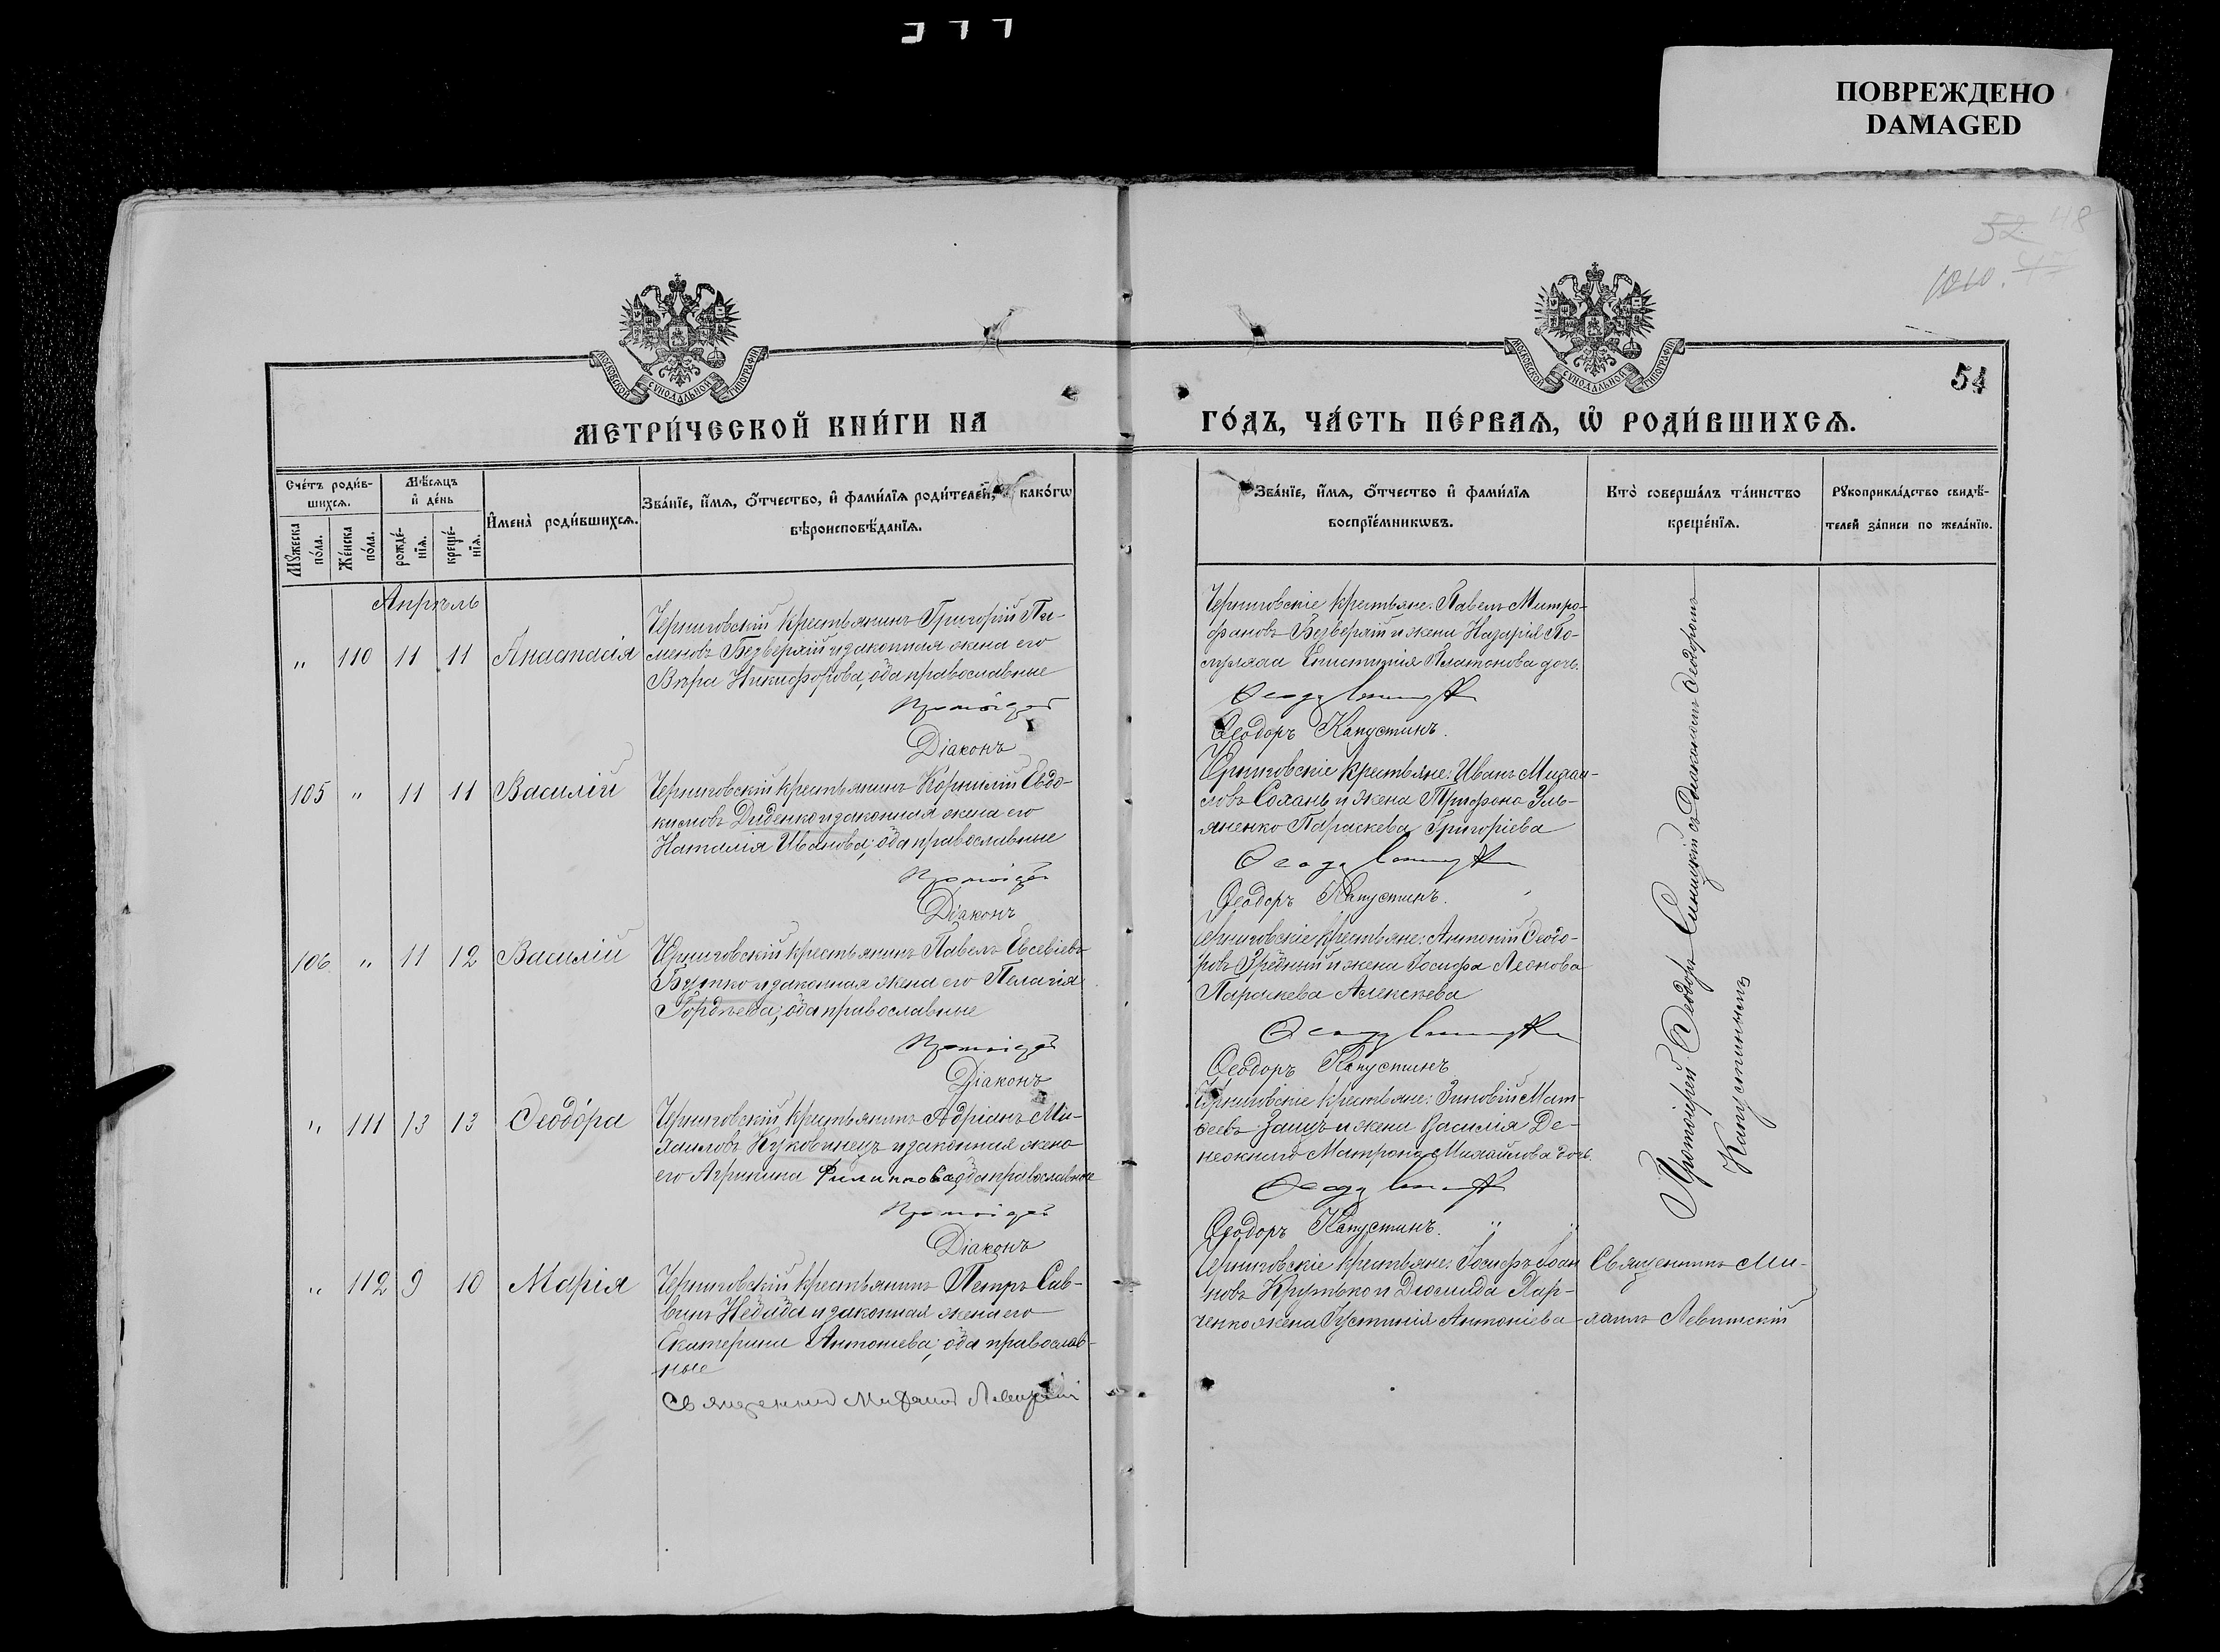 ПОВРЕЖДЕНО
DAMAGED
52 48
1010.
54
МОСКОВСКОЙ СѴНОДАЛЬНОЙ ТИПОГРАФІИ
МОСКОВСКОЙ СѴНОДАЛЬНОЙ ТИПОГРАФІИ
МЕТРИ́ЧЕСКОЙ КНИ́ГИ НА
ГО́ДЪ, ЧА́СТЬ ПЕ́РВАѦ, Ѡ҆ РОДИ́ВШИХСѦ.
Сче́тъ роди́в-
шихсѧ.
Мꙋжеска
по́ла.
Же́нска
по́ла.
Мѣ́сѧцъ
и҆ де́нь
рожде́-
нїѧ.
креще́-
нїѧ.
И҆мена̀ роди́вшихсѧ.
Зва́нїе, и҆́мѧ, ѻ҆́тчество, и҆ фами́лїѧ роди́телей, како́гѡ
вѣроисповѣ́данїѧ.
Зва́нїе, и҆́мѧ, ѻ҆́тчество и҆ фами́лїѧ
воспрїе́мникѡвъ.
Кто̀ соверша́лъ та́инство
креще́нїѧ.
Рꙋкоприкла́дство свидѣ́-
телей за́писи по жела́нїю.
Апрѣль
" 110 11 11 Анастасія
Черниговскій крестьянинъ Григорій Пи-
меновъ Безверхій и законная жена его
Вѣра Никифорова, оба православные
Протоіерей
Діаконъ
Черниговскіе крестьяне: Павелъ Митро-
фановъ Безверхій и жена Назарія
Платонова дочь.
Ѳеодоръ Капустинъ.
105 " 11 11 Василій
Черниговскій крестьянинъ Корнилій Евдо-
кимовъ Диденко и законная жена его
Наталія Иванова; оба православные
Протоіерей
Діаконъ
Черниговскіе крестьяне: Иванъ Михаи-
ловъ Сохань и жена Трифона Уль-
яненко Параскева Григоріева
Ѳеодоръ Капустинъ.
106 " 11 12 Василій
Черниговскій крестьянинъ Павелъ Евсевіевъ
и законная жена его Пелагія
Гордѣева; оба православные
Протоіерей
Діаконъ
Черниговскіе крестьяне: Антоній Ѳеодо-
ровъ и жена Іосифа Леонова
Параскева Алексѣева
Ѳеодоръ Капустинъ
" 111 13 13 Ѳеодора
Черниговскій крестьянинъ Адріанъ Ми-
хаиловъ и законная жена
его Агрипина Филиппова; оба православные
Протоіерей
Діаконъ
Черниговскіе крестьяне: Зиновій Мат-
ѳеевъ Заяцъ и жена Василія Де-
Матрона Михайлова дочь.
Ѳеодоръ Капустинъ. " "
Протоіерей Ѳеодоръ Синицкій съ Діакономъ Ѳеодоромъ
Капустинымъ
" 112 9 10 Марія
Черниговскій крестьянинъ Петръ Сав-
винъ и законная жена его
Екатерина Антоніева; оба православ-
ные
Священникъ Михаилъ Левитскій
Черниговскіе крестьяне: Іосифъ Іоан-
новъ Крутько и Діомида Хар-
ченко жена Іустинія Антоніева
Священникъ Ми-
хаилъ Левитскій